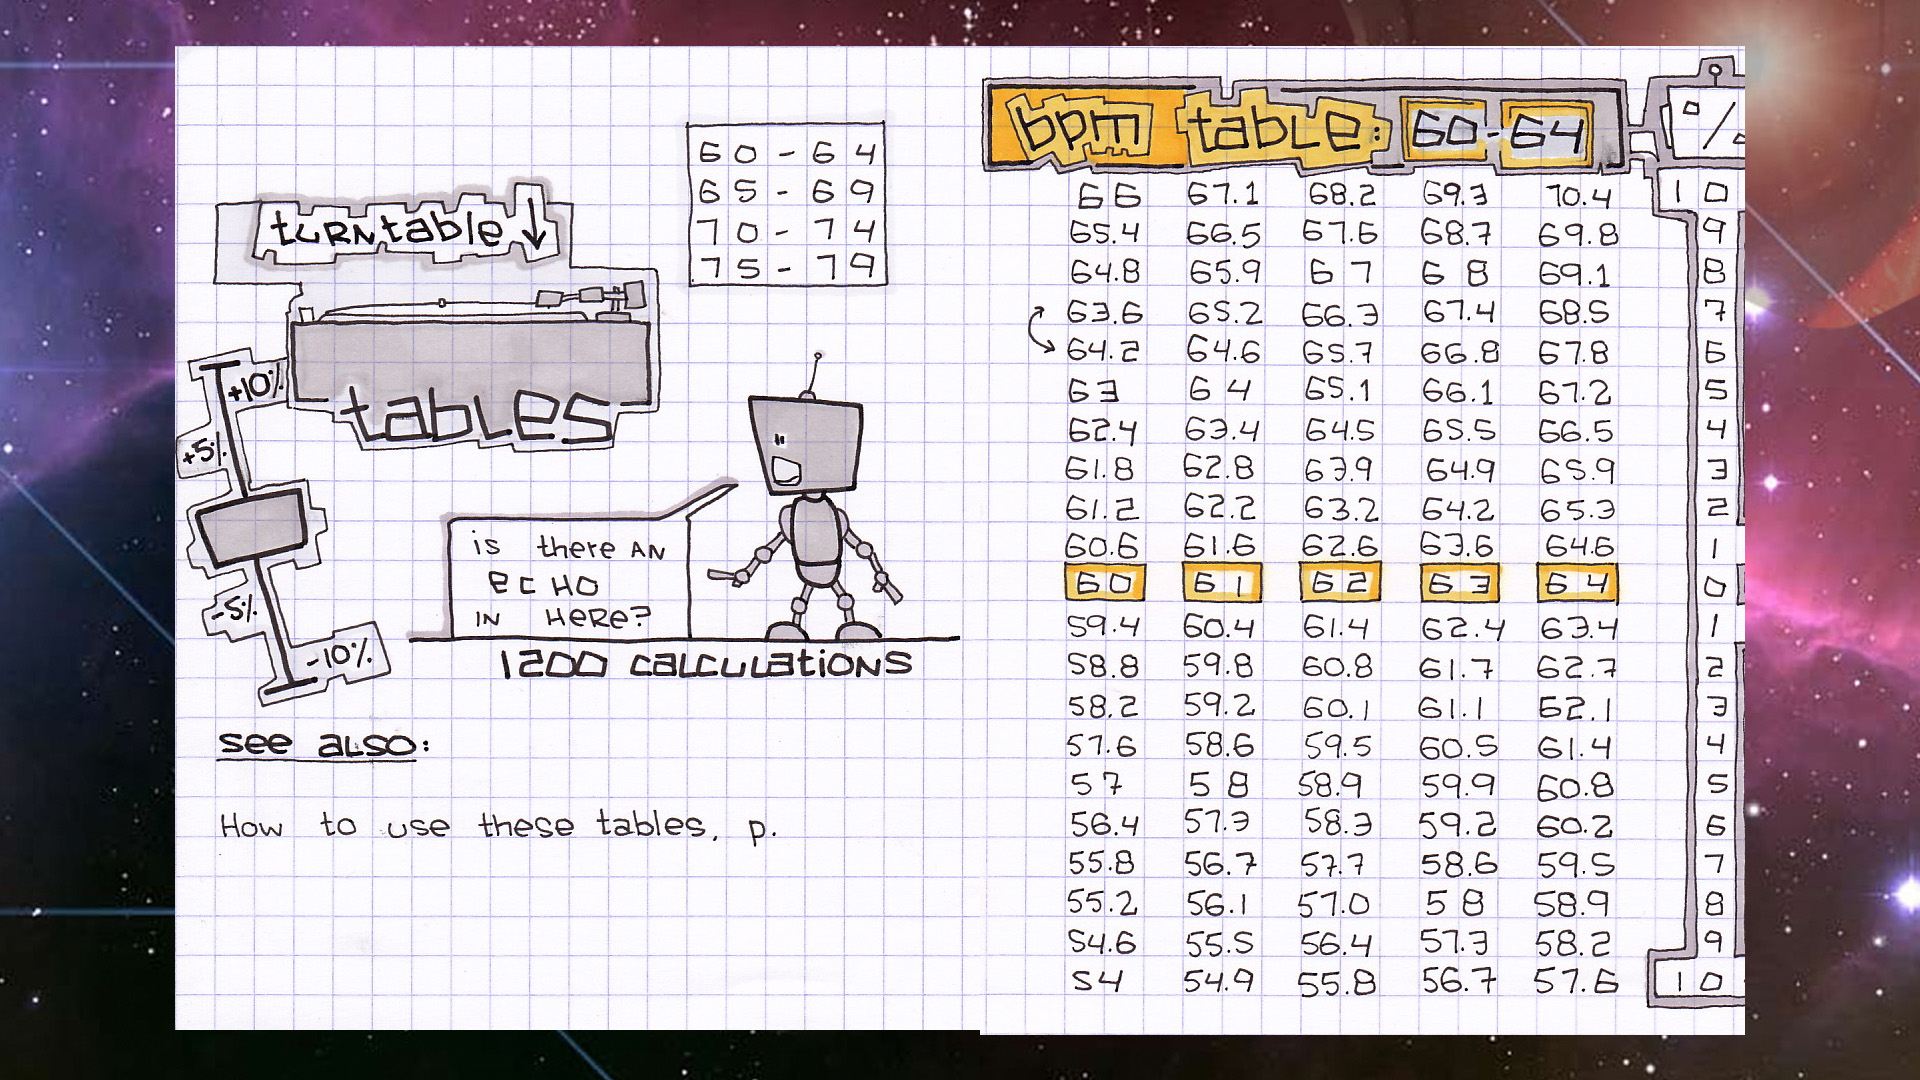 turntable ↓
tables
+10%
+5%
-5%
-10%
60 - 64
65 - 69
70 - 74
75 - 79
is there AN
ECHO
IN HERE?
1200 calculations
see also:
How to use these tables, p.
bpm table: 60-64 %
66 67.1 68.2 69.3 70.4 10
65.4 66.5 67.6 68.7 69.8 9
64.8 65.9 67 68 69.1 8
63.6 65.2 66.3 67.4 68.5 7
64.2 64.6 65.7 66.8 67.8 6
63 64 65.1 66.1 67.2 5
62.4 63.4 64.5 65.5 66.5 4
61.8 62.8 63.9 64.9 65.9 3
61.2 62.2 63.2 64.2 65.3 2
60.6 61.6 62.6 63.6 64.6 1
60 61 62 63 64 0
59.4 60.4 61.4 62.4 63.4 1
58.8 59.8 60.8 61.7 62.7 2
58.2 59.2 60.1 61.1 62.1 3
57.6 58.6 59.5 60.5 61.4 4
57 58 58.9 59.9 60.8 5
56.4 57.3 58.3 59.2 60.2 6
55.8 56.7 57.7 58.6 59.5 7
55.2 56.1 57.0 58 58.9 8
54.6 55.5 56.4 57.3 58.2 9
54 54.9 55.8 56.7 57.6 10